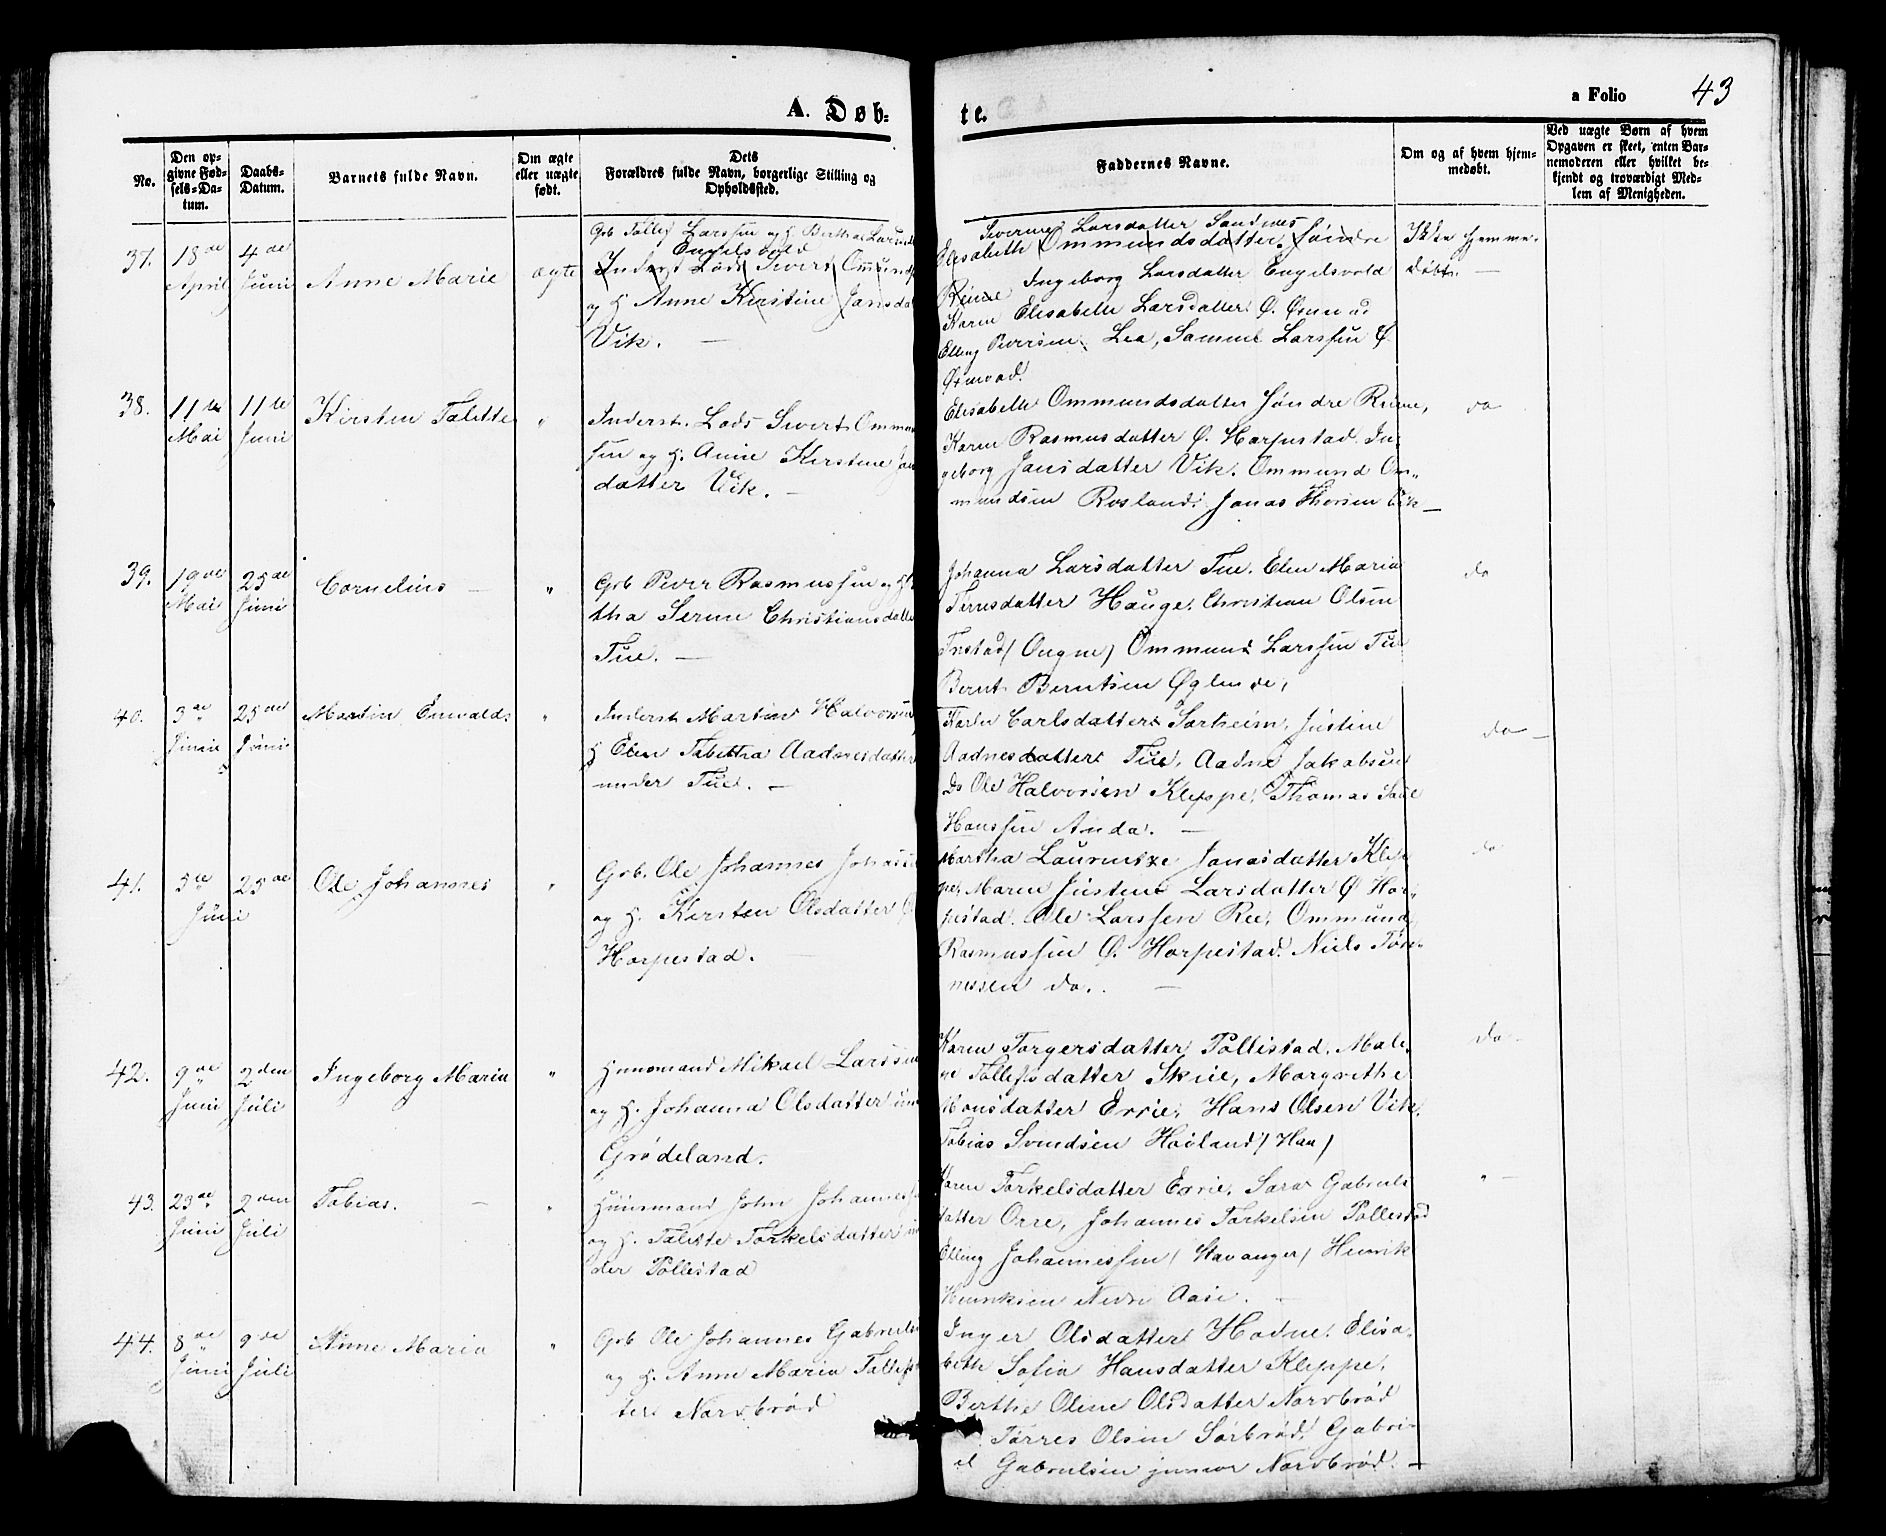 A. Døb-
te.
a Folio 43
No.
Den op-
givne Fød-
sels-Da-
tum.
Daabs-
Datum.
Barnets fulde Navn.
Om ægte
eller uægte
født.
Dets
Forældres fulde Navn, borgerlige Stilling og
Opholdssted.
Faddernes Navne.
Om og af hvem hjem-
medøbt.
Ved uægte Børn af hvem
Opgaven er skeet, enten Bar-
nemoderen eller hvilket be-
kjendt og troværdigt Med-
lem af Menigheden.
37.
18de
April
4de
Juni
Anne Marie
ægte
Grb Tollef Larssen og H. Berthe
Engelsvold
Inderst Lods Sivert Ommunds
og H. Anne Kirstine Jansda
Vik. —
Severine Larsdatter Sandnes
Elisabeth Ommundsdatter Søndre
Ingeborg Larsdatter Engelsvold
Reime
Karen Elisabeth Larsdatter Ø.
Elling Lea, Samuel Larssen Ø.
Ikke hjemme-
døbt. —
38.
11te
Mai
11te
Juni
Kirsten Talette
"
Inderst. Lods Sivert Ommun
sen og H. Anne Kirstine Jan
datter Vik. —
Elisabeth Ommundsdatter Søndre Reime,
Karen Rasmusdatter Ø. Harpestad. In-
geborg Jansdatter Vik. Ommund Om-
mundsen Rosland, Jonas Thorsen Vik —
do
39.
19de
Mai
25de
Juni
Cornelius —
"
Grb Peder Rasmussen og H
tha Serine Christiansdatte
Tue. —
Johanna Larsdatter Tue. Elen Maria
Torresdatter Hauge. Christian Olsen
Tustad (Ougne) Ommund Larssen Tue
Bernt Berntsen Øglende,
do
40.
3de
Juni
25de
Juni
Martin Enevalds
"
Inderst Martin Halvorsen
H Elen Tabitha Aadnesdatter
under Tue. —
Karen Carlsdatter Sørheim, Justine
Aadnesdatter Tue, Aadne Jakobsen
Do Ole Halvorsen Kleppe, Thomas
Hanssen Anda. —
do —
41.
5te
Juni
25de
Ole Johannes
"
Grb. Ole Johannes Jonass
og H. Kirsten Olsdatter Ø
Harpestad. —
Martha Laurentze Jonasdatter Klep-
pe, Maren Justine Larsdatter Ø Har-
pestad. Ole Larssen Ree, Ommund
Rasmussen Ø. Harpestad. Niels Tøn-
nessen do. —
do
42.
9de
Juni
2den
Juli
Ingeborg Maria
"
Huusmand Mikael Larssen
og H. Johanna Olsdatter un
Grødeland.
Karen Torgersdatter Pollestad. Male-
ne Tollefsdatter Skue, Margrethe
Monsdatter Ervie, Hans Olsen Vik,
Tobias Svendsen Høiland (Haa)
do —
43.
23de
Juni
2den
Juli
Tobias. —
"
Huusmand John Johannes
og H. Talette Torkelsdatter un
der Pollestad
Karen Torkelsdatter Ervie, Sara Gabriels
datter Orre, Johannes Torkelsen Pollestad
Elling Johannessen (Stavanger) Henrik
Henriksen Nedre Aase. —
" —
44.
8de
Juni
9de
Juli
Anne Maria
"
Grb Ole Johannes Gabriels
og H. Anne Maria Tollefs
ter Nordbrød
Inger Olsdatter Hodne. Elisa-
beth Sofia Hansdatter Kleppe,
Berthe Oline Olsdatter Nordbrød
Torres Olsen Sørbrød, Gabri-
el Gabrielsen junior Nordbrød. —